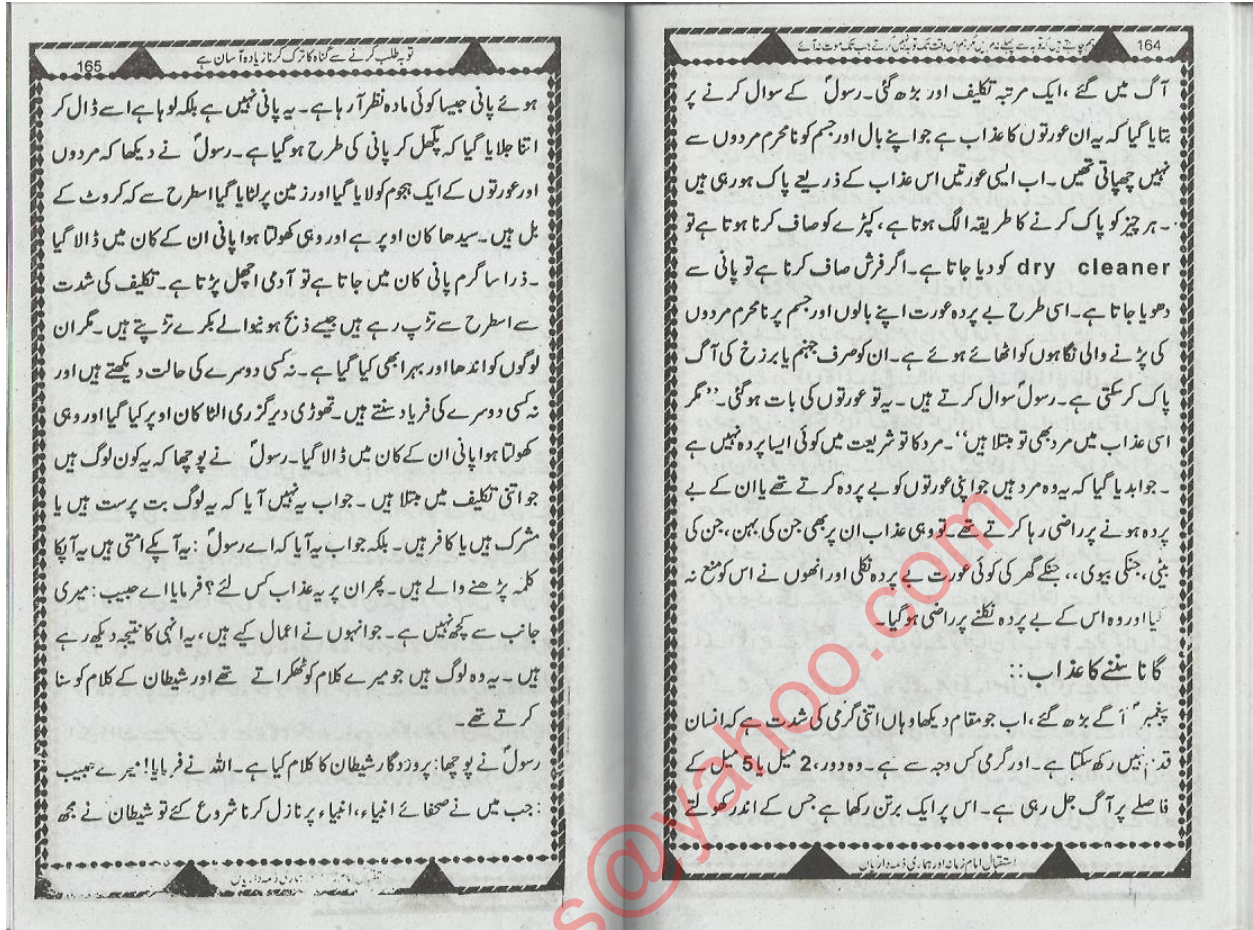 164
ہم چاہتے ہیں کہ توبہ سے پہلے نہ مریں مگر ہم اس وقت تک توبہ نہیں کرتے جب تک موت نہ آئے
آگ میں گئے ،ایک مرتبہ تکلیف اور بڑھ گئی۔رسولؐ کے سوال کرنے پر
بتایا گیا کہ یہ ان عورتوں کا عذاب ہے جو اپنے بال اور جسم کو نامحرم مردوں سے
نہیں چھپاتی تھیں ۔اب ایسی عورتیں اس عذاب کے ذریعے پاک ہورہی ہیں
۔ہر چیز کو پاک کرنے کا طریقہ الگ ہوتا ہے ،کپڑے کو صاف کرنا ہوتا ہے تو
dry cleaner کو دیا جاتا ہے۔اگر فرش صاف کرنا ہے تو پانی سے
دھویا جاتا ہے۔اسی طرح بے پردہ عورت اپنے بالوں اور جسم پر نامحرم مردوں
کی پڑنے والی نگاہوں کو اٹھائے ہوئے ہے۔ان کو صرف جہنم یا برزخ کی آگ
پاک کرسکتی ہے۔رسولؐ سوال کرتے ہیں ۔یہ تو عورتوں کی بات ہوگئی۔’’مگر
اسی عذاب میں مرد بھی تو مبتلا ہیں‘‘۔مرد کا تو شریعت میں کوئی ایسا پردہ نہیں ہے
۔جواب دیا گیا کہ یہ وہ مرد ہیں جو اپنی عورتوں کو بے پردہ کرتے تھے یا ان کے بے
پردہ ہونے پر راضی رہا کرتے تھے۔تو وہی عذاب ان پر بھی جن کی بہن،جن کی
بیٹی،جنکی بیوی،،جنکے گھر کی کوئی عورت بے پردہ نکلی اور انھوں نے اس کو منع نہ
کیا اور وہ اس کے بے پردہ نکلنے پر راضی ہوگیا۔
گانا سننے کا عذاب::
پیغمبرؐ آگے بڑھ گئے،اب جو مقام دیکھا وہاں اتنی گرمی کی شدت ہے کہ انسان
قدم نہیں رکھ سکتا ہے۔اور گرمی کس وجہ سے ہے۔وہ دور،2 میل یا 5 میل کے
فاصلے پر آگ جل رہی ہے۔اس پر ایک برتن رکھا ہے جس کے اندر کھولتے
استقبال امام زمانہ اور ہماری ذمہ داریاں
165
توبہ طلب کرنے سے گناہ کا ترک کرنا زیادہ آسان ہے
ہوئے پانی جیسا کوئی مادہ نظر آرہا ہے۔یہ پانی نہیں ہے بلکہ لوہا ہے اسے ڈال کر
اتنا جلایا گیا کہ پگھل کر پانی کی طرح ہوگیا ہے۔رسولؐ نے دیکھا کہ مردوں
اور عورتوں کے ایک ہجوم کو لایا گیا اور زمین پر لٹایا گیا اسطرح سے کہ کروٹ کے
بل ہیں۔سیدھا کان اوپر ہے اور وہی کھولتا ہوا پانی ان کے کان میں ڈالا گیا
۔ذرا سا گرم پانی کان میں جاتا ہے تو آدمی اچھل پڑتا ہے۔تکلیف کی شدت
سے اسطرح سے تڑپ رہے ہیں جیسے ذبح ہونیوالے بکرے تڑپتے ہیں۔مگر ان
لوگوں کو اندھا اور بہرا بھی کیا گیا ہے۔نہ کسی دوسرے کی حالت دیکھتے ہیں اور
نہ کسی دوسرے کی فریاد سنتے ہیں۔تھوڑی دیر گزری الٹا کان اوپر کیا گیا اور وہی
کھولتا ہوا پانی ان کے کان میں ڈالا گیا۔رسولؐ نے پوچھا کہ یہ کون لوگ ہیں
جو اتنی تکلیف میں مبتلا ہیں ۔جواب یہ نہیں آیا کہ یہ لوگ بت پرست ہیں یا
مشرک ہیں یا کافر ہیں۔بلکہ جواب یہ آیا کہ اے رسولؐ :یہ آپکے امتی ہیں یہ آپکا
کلمہ پڑھنے والے ہیں۔پھر ان پر یہ عذاب کس لئے؟فرمایا اے حبیب:میری
جانب سے کچھ نہیں ہے۔جو انہوں نے اعمال کیے ہیں،یہ انہی کا نتیجہ دیکھ رہے
ہیں ۔یہ وہ لوگ ہیں جو میرے کلام کو ٹھکراتے تھے اور شیطان کے کلام کو سنا
کرتے تھے۔
رسولؐ نے پوچھا:پروردگار شیطان کا کلام کیا ہے۔اللہ نے فرمایا!میرے حبیب
:جب میں نے صحفائے انبیاء،انبیاء پر نازل کرنا شروع کئے تو شیطان نے مجھ
ہماری ذمہ داریاں
s@yahoo.com